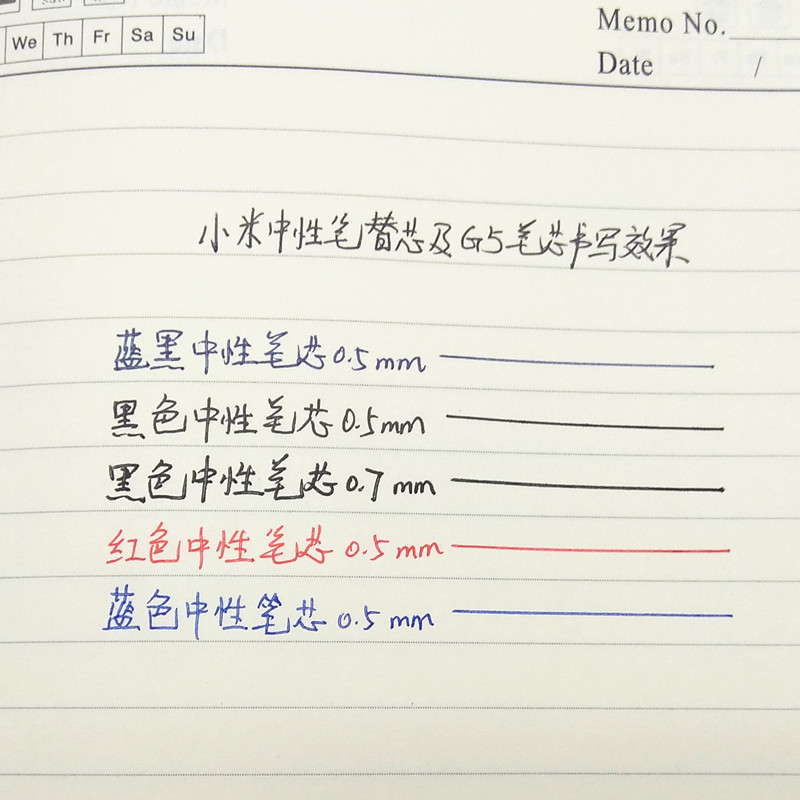 We Th Fr Sa Su
Memo No.
Date /
小米中性笔替芯及G5笔芯书写效果
蓝黑中性笔芯0.5mm
黑色中性笔芯0.5mm
黑色中性笔芯0.7mm
红色中性笔芯0.5mm
蓝色中性笔芯0.5mm